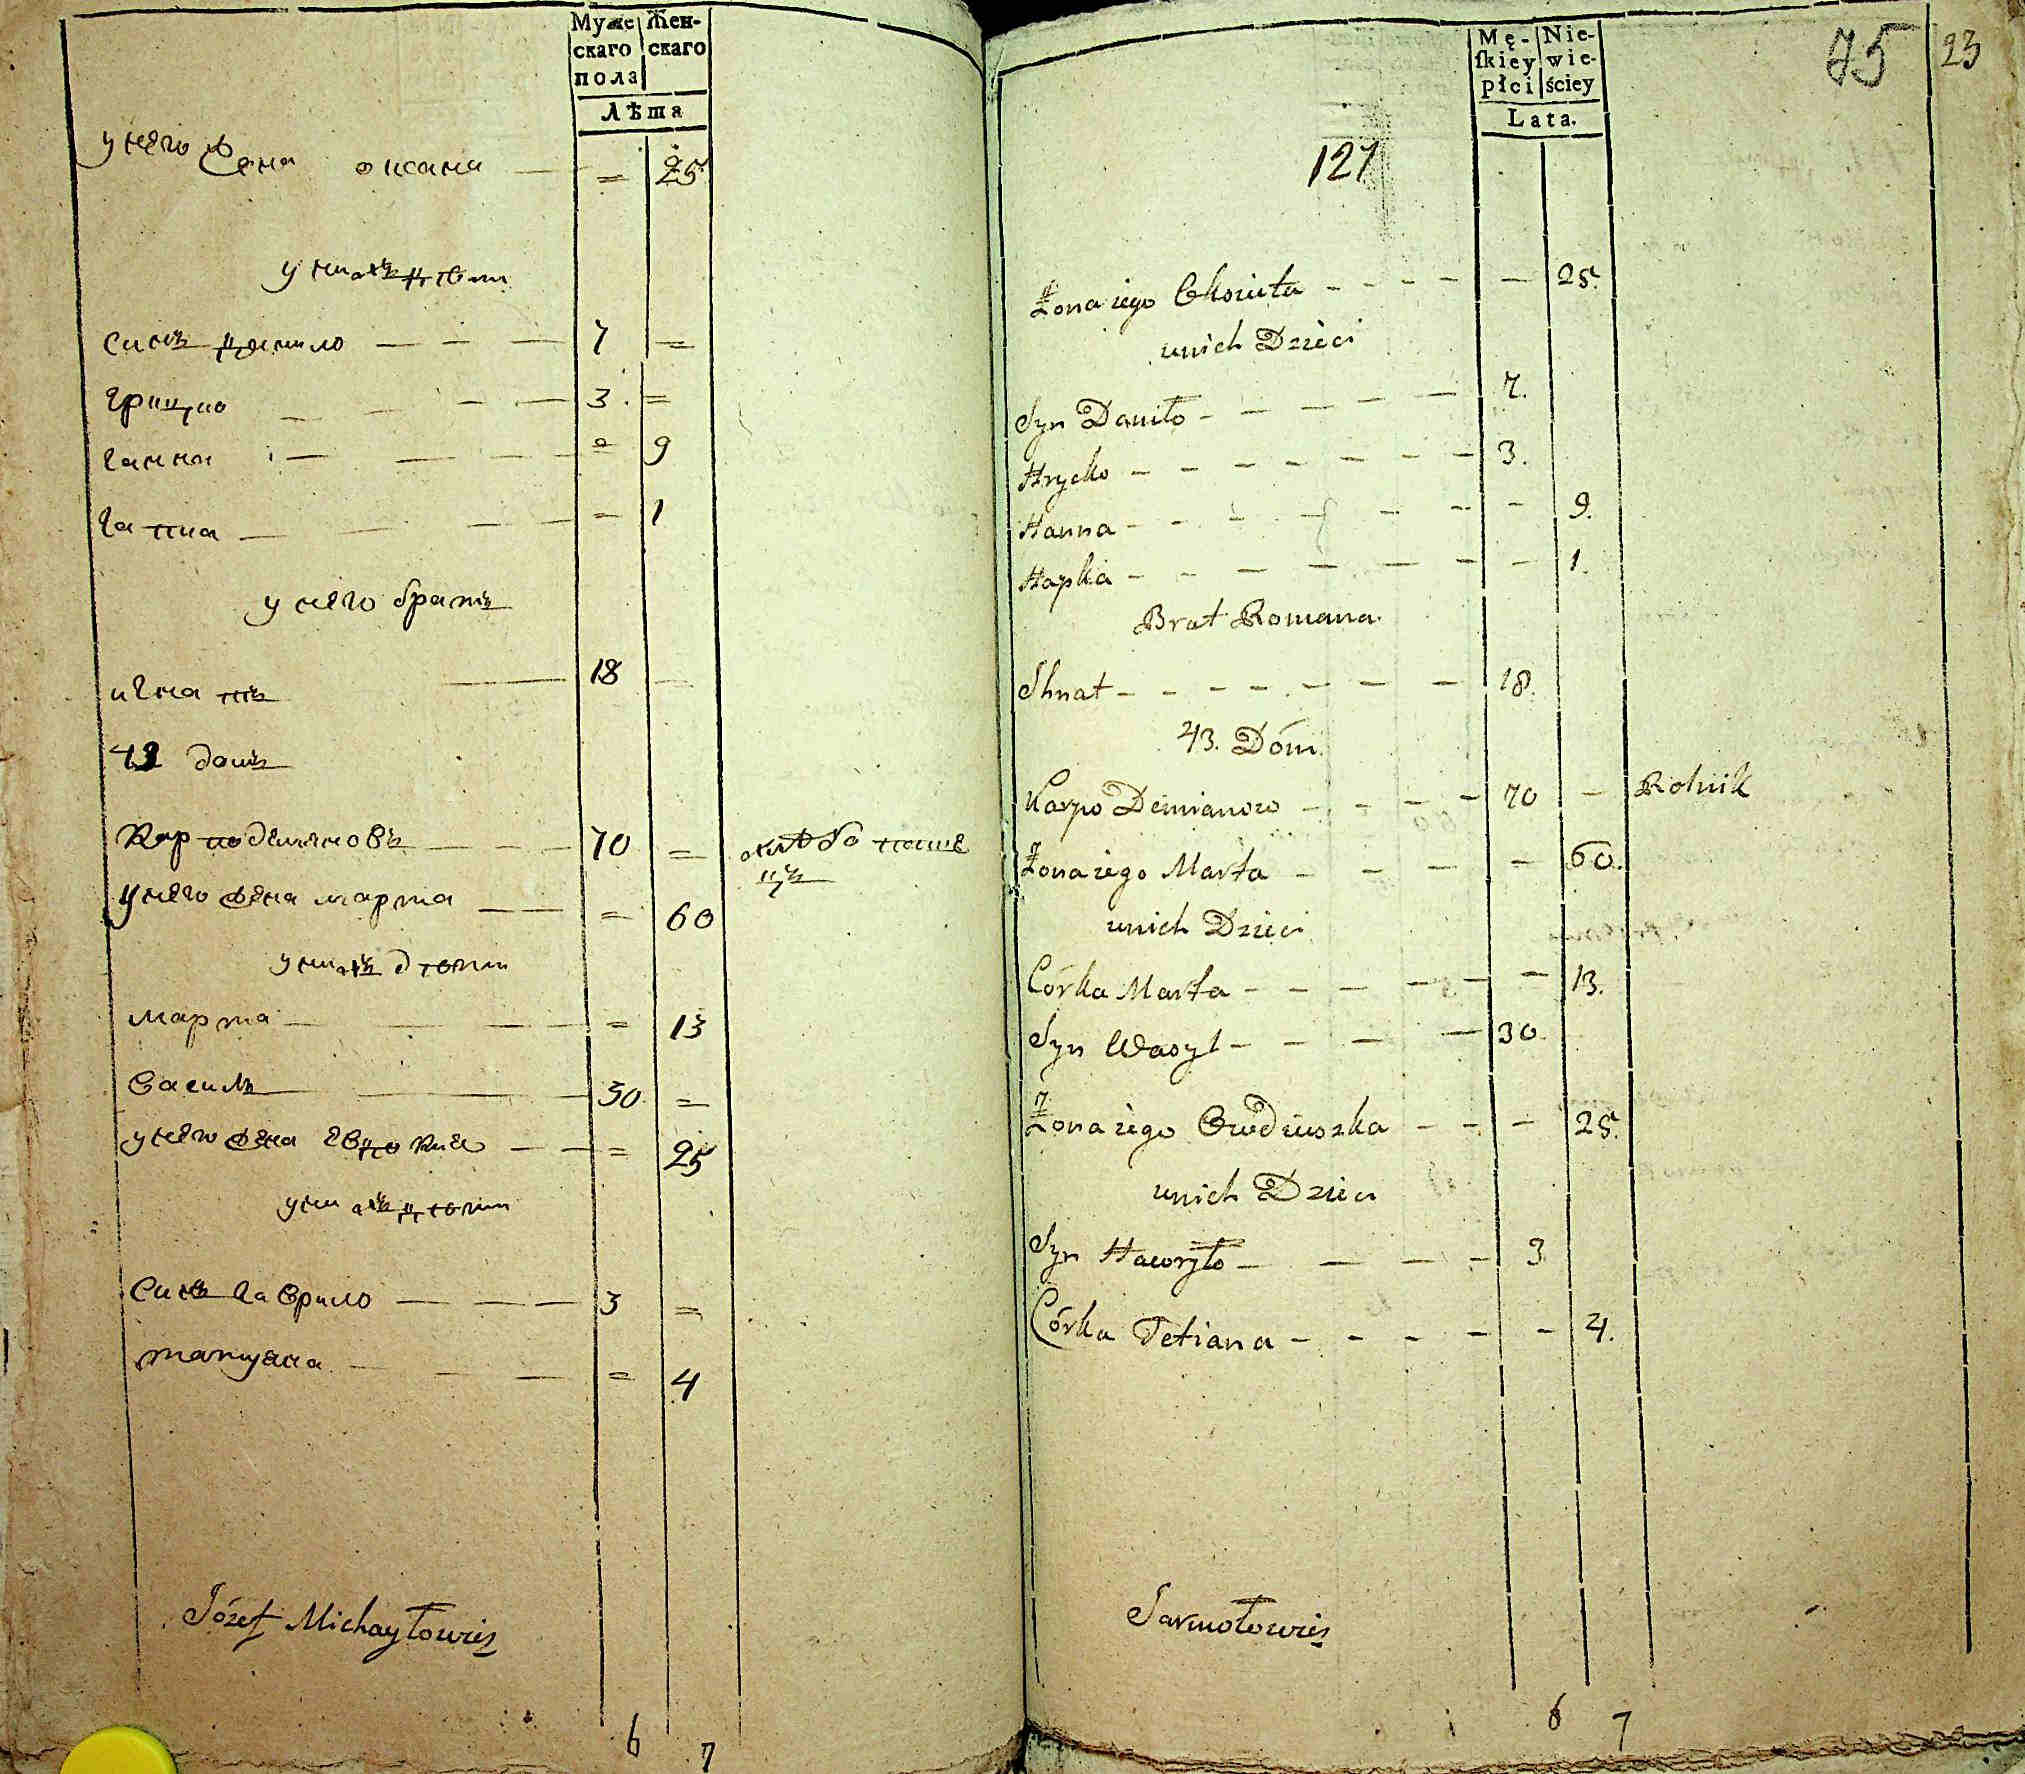 Муже Жен-
скаго скаго
пола
Лѣта
у него жена оксана — = 25
у нихъ дѣти
синъ данило — — — 7 =
грицко — — — — 3 . =
ганна — — — — = 9
гапка — — — — = 1
у него братъ
игнатъ — 18 —
43 домъ
Карпо демяновъ — — — 70 = хлѣбопаше
цъ
у него жена марта — — = 60
у нихъ дѣти
марта — — — — = 13
василь — — — 30 =
у него жена евдокия — — = 25
у нихъ дѣти
Синъ гаврило — — — 3 =
татыяна — — — = 4
Józef Michayłowicz
6 7
Mę- Nie-
ſkiey wie-
płci ściey
Lata.
75 23
127
Żona iego - - - - — 25.
unich Dzieci
Syn Daniło - - - - - — 7.
Hrycko - - - - - - - 3.
Hanna - - - - - - - - 9.
Hapka - - - - - - - - 1.
Brat Romana
Ihnat - - - - - - - — 18.
43. Dóm.
Karpo Demianow - - - - 70 — Rolnik
Żona iego Marta - - - - 60.
unich Dzieci
Córka Marta - - - - - - 13.
Syn Wasyl - - - - — 30.
Żona iego Owdiuszka - - - 25.
unich Dzieci
Syn Hawryło - - - - 3
Córka Tetiana - - - - - 4.
Jarmołowicz
6 7